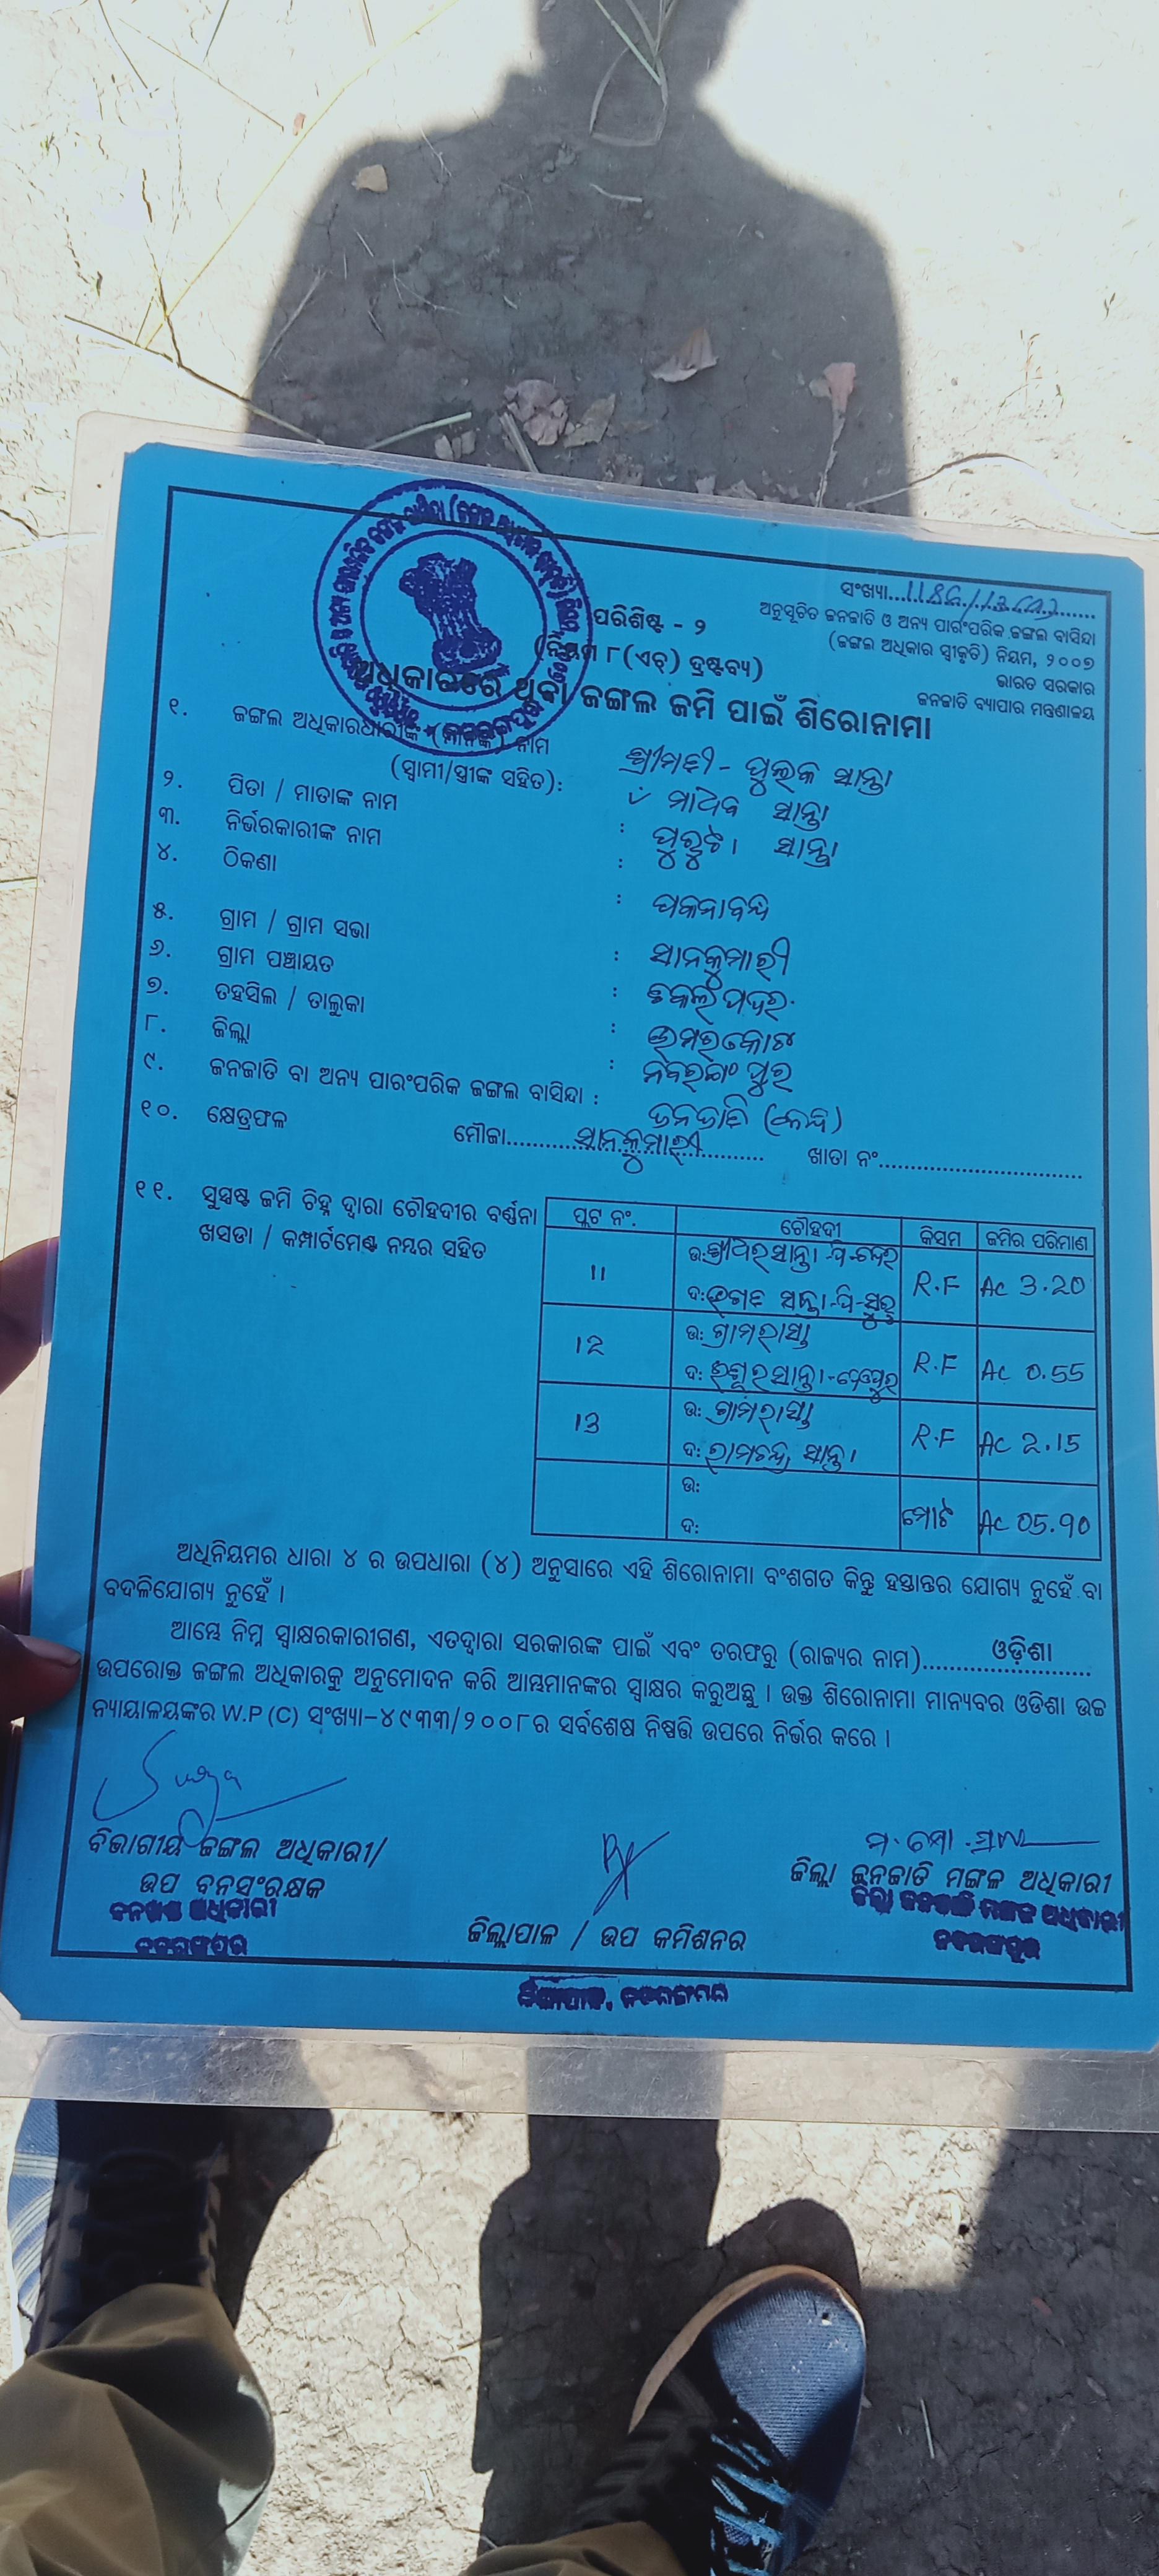 ସଂଖ୍ୟା
ଅନୁସୂଚିତ ଜନଜାତି ଓ ଅନ୍ୟ ପାରଂପରିକ ଜଙ୍ଗଲ ବାସିନ୍ଦା
(ଜଙ୍ଗଲ ଅଧିକାର ସ୍ୱୀକୃତି) ନିୟମ, ୨୦୦୭
ଭାରତ ସରକାର
ଜନଜାତି ବ୍ୟାପାର ମନ୍ତ୍ରଣାଳୟ
ପରିଶିଷ୍ଟ - ୨
(ନିୟମ ୮(ଏଚ୍) ଦ୍ରଷ୍ଟବ୍ୟ)
ଅଧିକାରରେ ଥିବା ଜଙ୍ଗଲ ଜମି ପାଇଁ ଶିରୋନାମା
୧. ଜଙ୍ଗଲ ଅଧିକାରଧାରୀଙ୍କ (ମାନଙ୍କ) ନାମ
(ସ୍ୱାମୀ/ସ୍ତ୍ରୀଙ୍କ ସହିତ): ଶ୍ରୀମତୀ - ସାନ୍ତା
୨. ପିତା / ମାତାଙ୍କ ନାମ : ମାଧବ ସାନ୍ତା
୩. ନିର୍ଭରକାରୀଙ୍କ ନାମ : ସାନ୍ତା
୪. ଠିକଣା :
୫. ଗ୍ରାମ / ଗ୍ରାମ ସଭା : ସାନକୁମାରୀ
୬. ଗ୍ରାମ ପଞ୍ଚାୟତ :
୭. ତହସିଲ / ତାଲୁକା : ଉମରକୋଟ
୮. ଜିଲ୍ଲା : ନବରଙ୍ଗପୁର
୯. ଜନଜାତି ବା ଅନ୍ୟ ପାରଂପରିକ ଜଙ୍ଗଲ ବାସିନ୍ଦା :
୧୦. କ୍ଷେତ୍ରଫଳ ମୌଜା ସାନକୁମାରୀ ଖାତା ନଂ
୧୧. ସୁସ୍ପଷ୍ଟ ଜମି ଚିହ୍ନ ଦ୍ୱାରା ଚୌହଦୀର ବର୍ଣ୍ଣନା
ଖସଡା / କମ୍ପାର୍ଟମେଣ୍ଟ ନମ୍ବର ସହିତ
ପ୍ଲଟ ନଂ. ଚୌହଦୀ କିସମ ଜମିର ପରିମାଣ
11 ଉ: ଦ: R.F Ac 3.20
12 ଉ: ଗ୍ରାମରାସ୍ତା ଦ: R.F Ac 0.55
13 ଉ: ଗ୍ରାମରାସ୍ତା ଦ: ରାମଚନ୍ଦ୍ର ସାନ୍ତା R.F Ac 2.15
ଉ: ଦ: ମୋଟ Ac 05.90
ଅଧିନିୟମର ଧାରା ୪ ର ଉପଧାରା (୪) ଅନୁସାରେ ଏହି ଶିରୋନାମା ବଂଶଗତ କିନ୍ତୁ ହସ୍ତାନ୍ତର ଯୋଗ୍ୟ ନୁହେଁ ବା
ବଦଳିଯୋଗ୍ୟ ନୁହେଁ ।
ଆମ୍ଭେ ନିମ୍ନ ସ୍ୱାକ୍ଷରକାରୀଗଣ, ଏତଦ୍ୱାରା ସରକାରଙ୍କ ପାଇଁ ଏବଂ ତରଫରୁ (ରାଜ୍ୟର ନାମ) ଓଡ଼ିଶା
ଉପରୋକ୍ତ ଜଙ୍ଗଲ ଅଧିକାରକୁ ଅନୁମୋଦନ କରି ଆମ୍ଭମାନଙ୍କର ସ୍ୱାକ୍ଷର କରୁଅଛୁ । ଉକ୍ତ ଶିରୋନାମା ମାନ୍ୟବର ଓଡିଶା ଉଚ୍ଚ
ନ୍ୟାୟାଳୟଙ୍କର W.P (C) ସଂଖ୍ୟା-୪୯୩୩/୨୦୦୮ର ସର୍ବଶେଷ ନିଷ୍ପତ୍ତି ଉପରେ ନିର୍ଭର କରେ ।
ବିଭାଗୀୟ ଜଙ୍ଗଲ ଅଧିକାରୀ/
ଉପ ବନସଂରକ୍ଷକ
ବନଖଣ୍ଡ ଅଧିକାରୀ
ନବରଙ୍ଗପୁର
ଜିଲ୍ଲାପାଳ / ଉପ କମିଶନର
ଜିଲ୍ଲାପାଳ, ନବରଙ୍ଗପୁର
ଜିଲ୍ଲା ଜନଜାତି ମଙ୍ଗଳ ଅଧିକାରୀ
ଜିଲ୍ଲା ଜନଜାତି ମଙ୍ଗଳ ଅଧିକାରୀ
ନବରଙ୍ଗପୁର